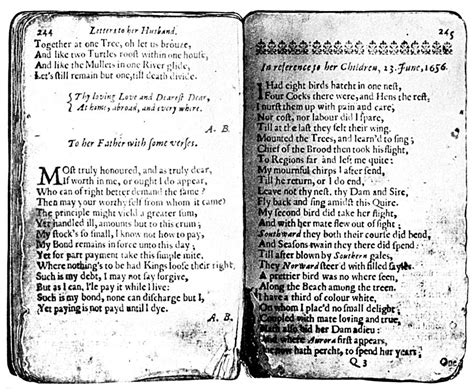 244 Letters to her Husband.
Together at one Tree, oh let us brouze,
And like two Turtles roost within one house,
And like the Mullets in one River glide,
Let's still remain but one, till death divide.
Thy loving Love and Dearest Dear,
At home, abroad, and every where.
A. B.
To her Father with some verses.
Most truly honoured, and as truly dear,
If worth in me, or ought I do appear,
Who can of right better demand the same?
Then may your worthy self from whom it came?
The principle might yield a greater sum,
Yet handled ill, amounts but to this crum;
My stock's so small, I know not how to pay,
My Bond remains in force unto this day;
Yet for part payment take this simple mite,
Where nothing's to be had Kings loose their right,
Such is my debt, I may not say forgive,
But as I can, I'le pay it while I live:
Such is my bond, none can discharge but I,
Yet paying is not payd until I dye.
A. B.
245
In reference to her Children, 23. June, 1656.
I Had eight birds hatcht in one nest,
Four Cocks there were, and Hens the rest,
I nurst them up with pain and care,
Nor cost, nor labour did I spare,
Till at the last they felt their wing.
Mounted the Trees, and learn'd to sing;
Chief of the Brood then took his flight,
To Regions far and left me quite:
My mournful chirps I after send,
Till he return, or I do end,
Leave not thy nest, thy Dam and Sire,
Fly back and sing amidst this Quire.
My second bird did take her flight,
And with her mate flew out of sight;
Southward they both their course did bend,
And Seasons twain they there did spend:
Till after blown by Southern gales,
They Norward steer'd with filled sayles.
A prettier bird was no where seen,
Along the Beach among the treen.
I have a third of colour white,
On whom I plac'd no small delight;
Coupled with mate loving and true,
Hath also bid her Dam adieu:
And where Aurora first appears,
She now hath percht, to spend her years;
Q 3 One